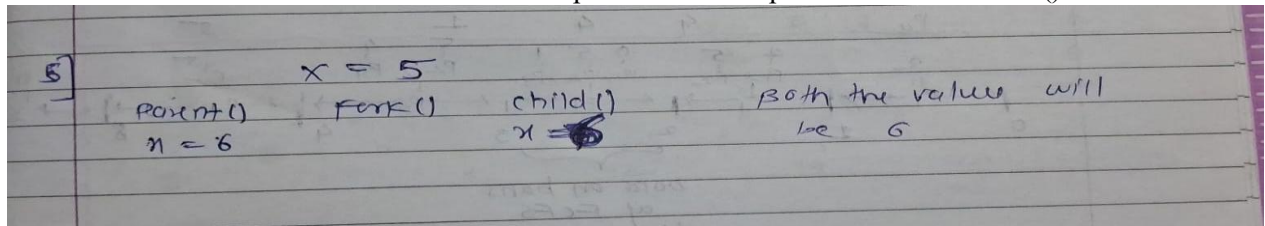 5]
x = 5
Parent() Fork() child() Both the values will
x = 6 x = 6 be 6